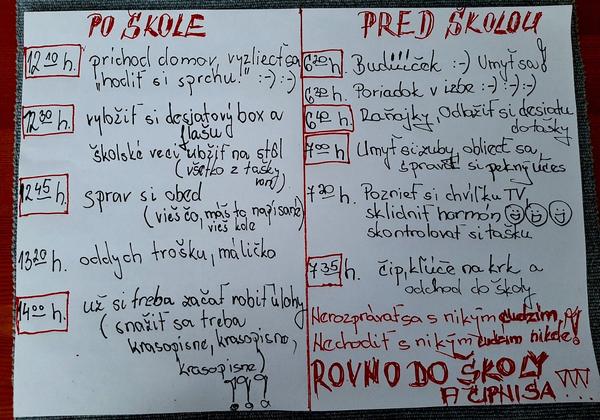 PO ŠKOLE
12 10 h. príchod domov, vyzliecť sa
"hodiť si sprchu!" :-) :-)
12 30 h. vyložiť si desiatový box a
fľašu
školské veci uložiť na stôl
(všetko z tašky
von)
12 45 h. sprav si obed
(vieš čo, máš to napísané
vieš kde
13 20 h. oddych trošku, máličko
14 00 h. už si treba začať robiť úlohy
(snažiť sa treba
krasopisne, krasopisne,
krasopisne)
!!!
PRED ŠKOLOU
6 20 h. Budííček :-) Umyť sa!
6 30 h. Poriadok v izbe :-) :-)
6 40 h. Raňajky, Odložiť si desiatu
do tašky
7 00 h. Umyť si zuby, obliecť sa,
spraviť si pekný účes
7 20 h. Pozrieť si chvíľku TV
skľudniť hormón
skontrolovať si tašku
7 35 h. čip, kľúče na krk a
odchod do školy
Nerozprávať sa s nikým cudzím,!!
Nechodiť s nikým cudzím nikde!
ROVNO DO ŠKOLY
A ČIPNI SA!!!...